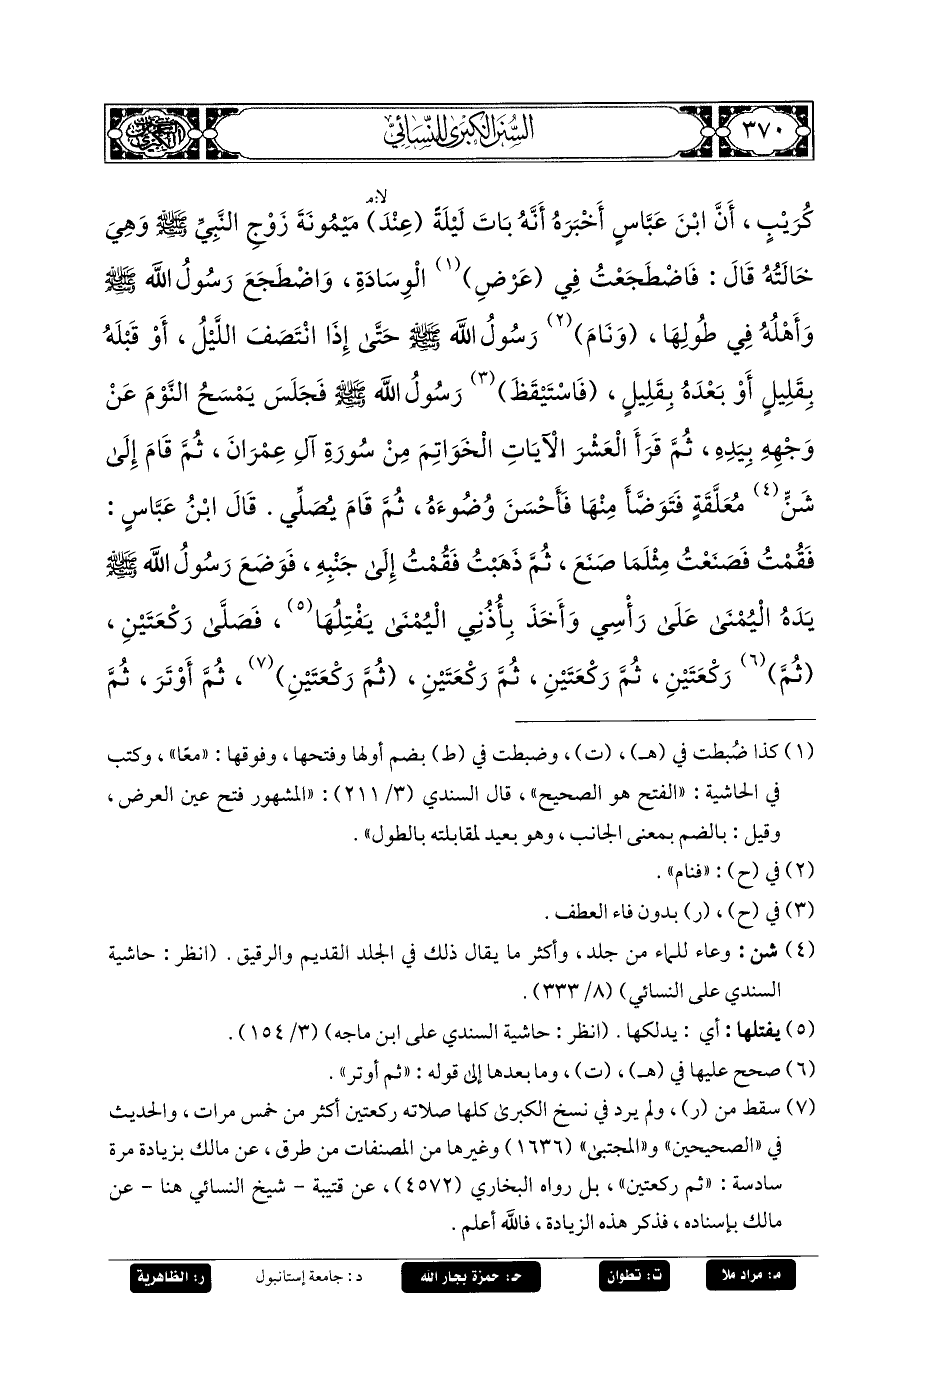 ٣٧٠
السنن الكبرى للنسائي
كُرَيْبٍ ، أَنَّ ابْنَ عَبَّاسٍ أَخْبَرَهُ أَنَّهُ بَاتَ لَيْلَةً (عِنْدَ) مَيْمُونَةَ زَوْجِ النَّبِيِّ ﷺ وَهِيَ
خَالَتُهُ قَالَ : فَاضْطَجَعْتُ فِي (عَرْضِ)(١) الْوِسَادَةِ ، وَاضْطَجَعَ رَسُولُ اللَّه ﷺ
وَأَهْلُهُ فِي طُولِهَا ، (وَنَامَ)(٢) رَسُولُ اللَّه ﷺ حَتَّى إِذَا انْتَصَفَ اللَّيْلُ ، أَوْ قَبْلَهُ
بِقَلِيلٍ أَوْ بَعْدَهُ بِقَلِيلٍ ، (فَاسْتَيْقَظَ)(٣) رَسُولُ اللَّه ﷺ فَجَلَسَ يَمْسَحُ النَّوْمَ عَنْ
وَجْهِهِ بِيَدِهِ ، ثُمَّ قَرَأَ الْعَشْرَ الْآيَاتِ الْخَوَاتِمَ مِنْ سُورَةِ آلِ عِمْرَانَ ، ثُمَّ قَامَ إِلَى
شَنٍّ(٤) مُعَلَّقَةٍ فَتَوَضَّأَ مِنْهَا فَأَحْسَنَ وُضُوءَهُ ، ثُمَّ قَامَ يُصَلِّي . قَالَ ابْنُ عَبَّاسٍ :
فَقُمْتُ فَصَنَعْتُ مِثْلَمَا صَنَعَ ، ثُمَّ ذَهَبْتُ فَقُمْتُ إِلَى جَنْبِهِ ، فَوَضَعَ رَسُولُ اللَّه ﷺ
يَدَهُ الْيُمْنَى عَلَى رَأْسِي وَأَخَذَ بِأُذُنِي الْيُمْنَى يَفْتِلُهَا(٥) ، فَصَلَّى رَكْعَتَيْنِ ،
(ثُمَّ)(٦) رَكْعَتَيْنِ ، ثُمَّ رَكْعَتَيْنِ ، ثُمَّ رَكْعَتَيْنِ ، (ثُمَّ رَكْعَتَيْنِ)(٧) ، ثُمَّ أَوْتَرَ ، ثُمَّ
(١) كذا ضُبطت في (هـ) ، (ت) ، وضبطت في (ط) بضم أولها وفتحها ، وفوقها : «معًا» ، وكتب
في الحاشية : «الفتح هو الصحيح» ، قال السندي (٣/ ٢١١) : «المشهور فتح عين العرض ،
وقيل : بالضم بمعنى الجانب ، وهو بعيد لمقابلته بالطول» .
(٢) في (ح) : «فنام» .
(٣) في (ح) ، (ر) بدون فاء العطف .
(٤) شن : وعاء للماء من جلد ، وأكثر ما يقال ذلك في الجلد القديم والرقيق . (انظر : حاشية
السندي على النسائي) (٨/ ٣٣٣) .
(٥) يفتلها : أي : يدلكها . (انظر : حاشية السندي على ابن ماجه) (٣/ ١٥٤) .
(٦) صحح عليها في (هـ) ، (ت) ، وما بعدها إلى قوله : «ثم أوتر» .
(٧) سقط من (ر) ، ولم يرد في نسخ الكبرى كلها صلاته ركعتين أكثر من خمس مرات ، والحديث
في «الصحيحين» و«المجتبى» (١٦٣٦) وغيرها من المصنفات من طرق ، عن مالك بزيادة مرة
سادسة : «ثم ركعتين» ، بل رواه البخاري (٤٥٧٢) ، عن قتيبة - شيخ النسائي هنا - عن
مالك بإسناده ، فذكر هذه الزيادة ، فاللَّه أعلم .
م: مراد ملا ت: تطوان ح: حمزة بجار الله د: جامعة إستانبول ر: الظاهرية